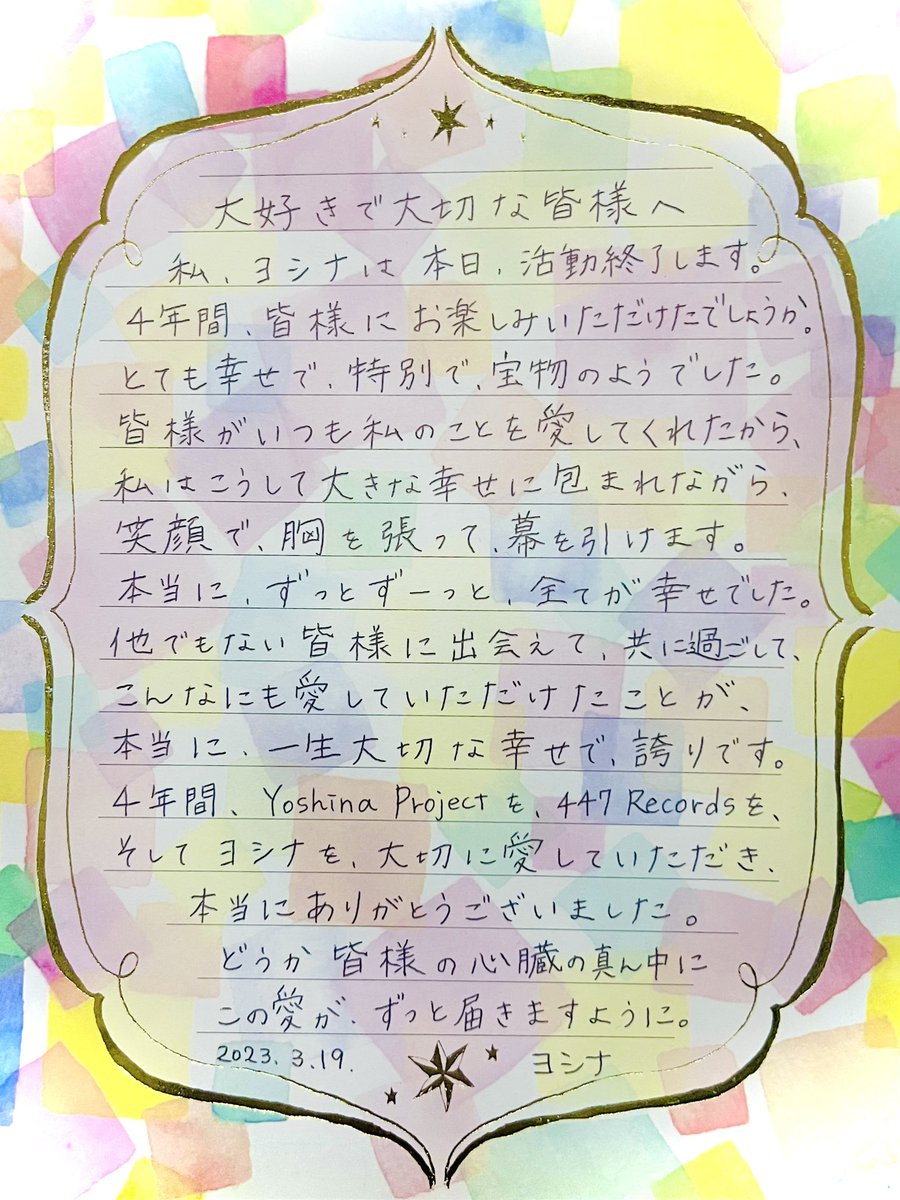 大好きで大切な皆様へ
私、ヨシナは本日、活動終了します。
4年間、皆様にお楽しみいただけたでしょうか。
とても幸せで、特別で、宝物のようでした。
皆様がいつも私のことを愛してくれたから、
私はこうして大きな幸せに包まれながら、
笑顔で、胸を張って、幕を引けます。
本当に、ずっとずーっと、全てが幸せでした。
他でもない皆様に出会えて、共に過ごして、
こんなにも愛していただけたことが、
本当に、一生大切な幸せで、誇りです。
4年間、Yoshina Projectを、447 Recordsを、
そしてヨシナを、大切に愛していただき、
本当にありがとうございました。
どうか皆様の心臓の真ん中に
この愛が、ずっと届きますように。
2023.3.19. ヨシナ